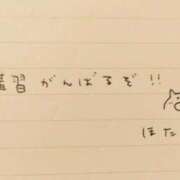 講習がんばるぞ!!
ほた